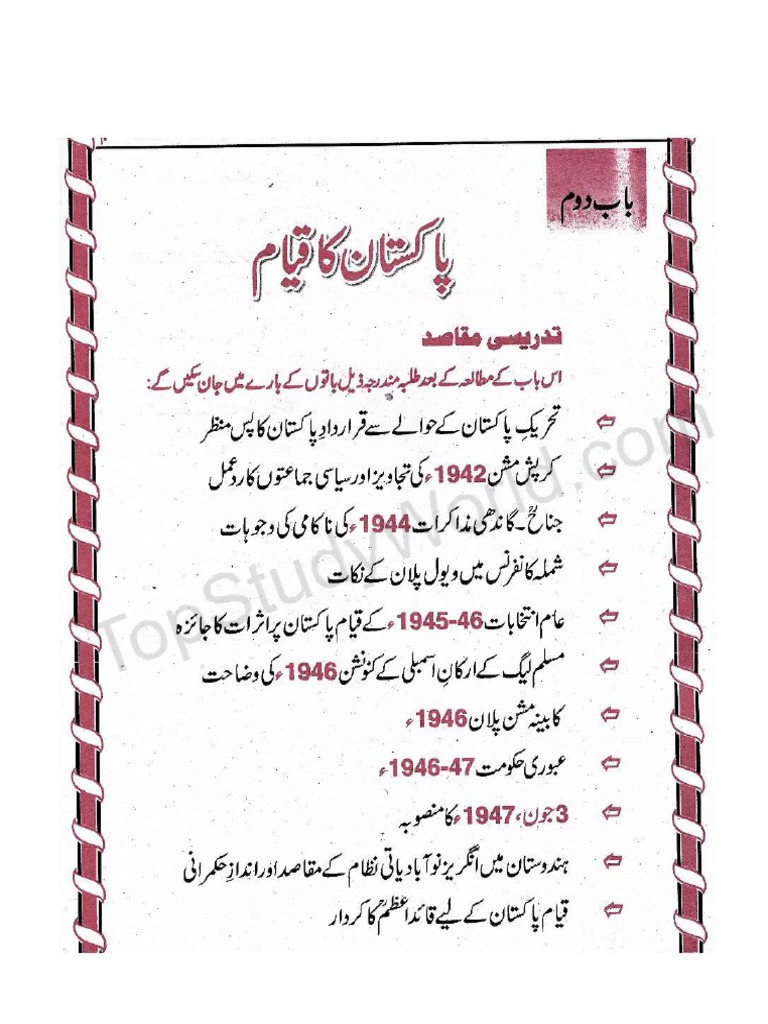 باب دوم
پاکستان کا قیام
تدریسی مقاصد
اس باب کے مطالعہ کے بعد طلبہ مندرجہ ذیل باتوں کے بارے میں جان سکیں گے:
تحریکِ پاکستان کے حوالے سے قراردادِ پاکستان کا پس منظر
کرپش مشن 1942ء کی تجاویز اور سیاسی جماعتوں کا ردِعمل
جناحؒ۔ گاندھی مذاکرات 1944ء کی ناکامی کی وجوہات
شملہ کانفرنس میں ویول پلان کے نکات
عام انتخابات 46-1945ء کے قیام پاکستان پر اثرات کا جائزہ
مسلم لیگ کے ارکانِ اسمبلی کے کنونشن 1946ء کی وضاحت
کابینہ مشن پلان 1946ء
عبوری حکومت 47-1946ء
3 جون، 1947ء کا منصوبہ
ہندوستان میں انگریز نوآبادیاتی نظام کے مقاصد اور اندازِ حکمرانی
قیام پاکستان کے لیے قائداعظمؒ کا کردار
TopStudyWorld.com